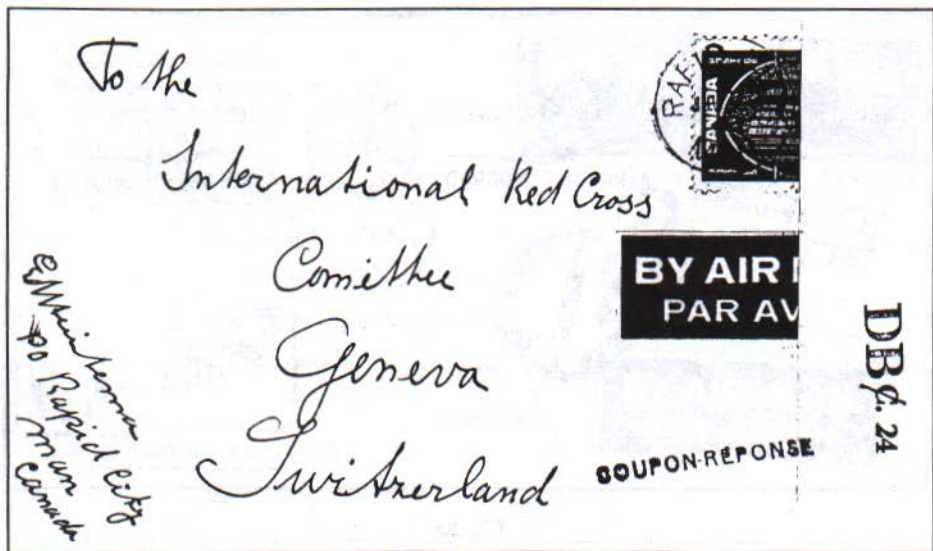 To the
International Red Cross
Comithee
Geneva
Switzerland
PO Rapid City
Man
Canada
RAPID
CANADA
BY AIR
PAR AV
COUPON-REPONSE
DB¢. 24